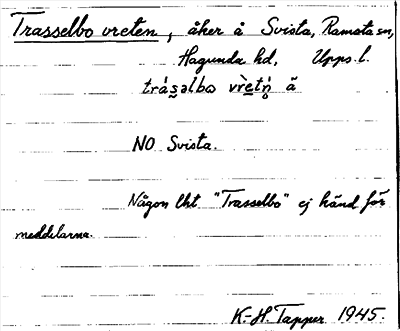 Trasselbo vreten, åker å Svista, Ramsta sn,
Hagunda hd, Upps. l.
NO Svista.
Någon lht "Trasselbo" ej känd för
meddelarna.
K-H. Tapper 1945.